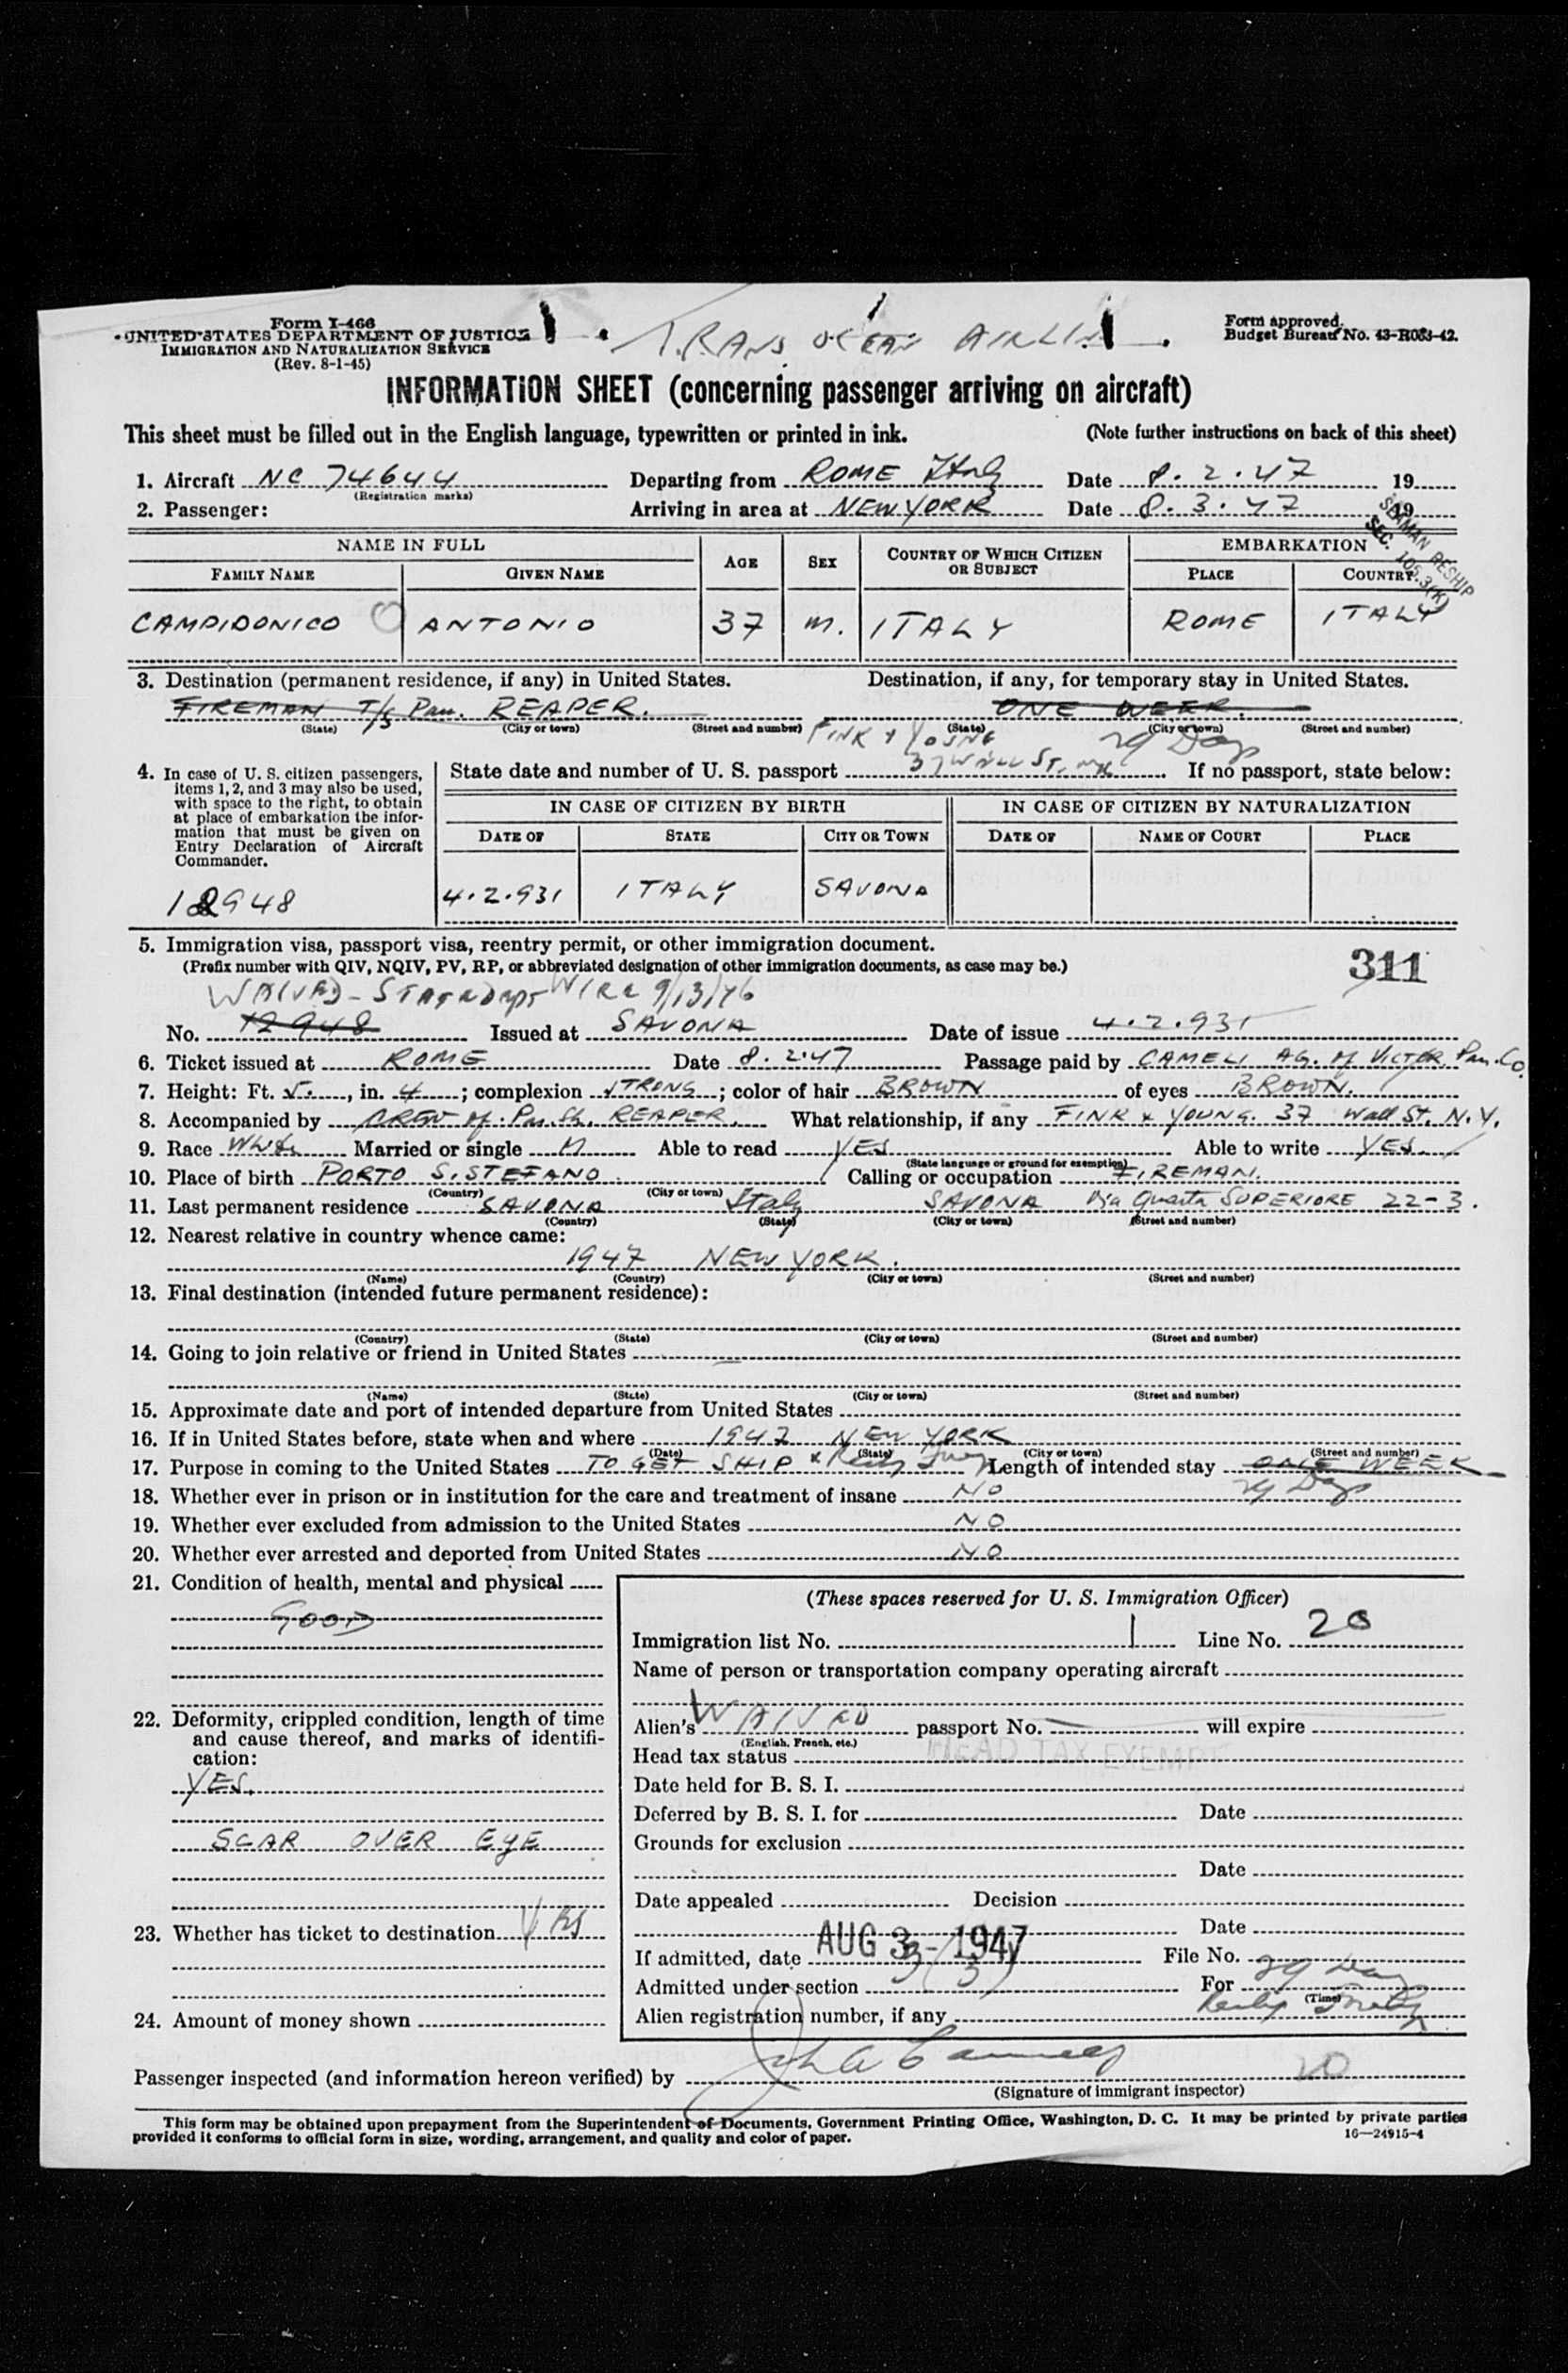 Form I-466
UNITED STATES DEPARTMENT OF JUSTICE
IMMIGRATION AND NATURALIZATION SERVICE
(Rev. 8-1-45)
TRANS OCEAN AIRLIN
Form approved.
Budget Bureau No. 43-R083-42.
INFORMATION SHEET (concerning passenger arriving on aircraft)
This sheet must be filled out in the English language, typewritten or printed in ink. (Note further instructions on back of this sheet)
1. Aircraft NC 74644 Departing from ROME Italy Date 8.2.47 19
(Registration marks)
2. Passenger: Arriving in area at NEW YORK Date 8.3.47 19
SEAMAN RESHIP
SEC. 105.3(K)
NAME IN FULL AGE SEX COUNTRY OF WHICH CITIZEN OR SUBJECT EMBARKATION
FAMILY NAME GIVEN NAME PLACE COUNTRY
CAMPIDONICO ANTONIO 37 M. ITALY ROME ITALY
3. Destination (permanent residence, if any) in United States. Destination, if any, for temporary stay in United States.
FIREMAN T/S Pan. REAPER. ONE WEEK.
(State) (City or town) (Street and number) (State) (City or town) (Street and number)
FINK & YOUNG 29 Days
37 WALL ST. NY
4. In case of U. S. citizen passengers, items 1, 2, and 3 may also be used, with space to the right, to obtain at place of embarkation the information that must be given on Entry Declaration of Aircraft Commander.
State date and number of U. S. passport If no passport, state below:
IN CASE OF CITIZEN BY BIRTH IN CASE OF CITIZEN BY NATURALIZATION
DATE OF STATE CITY OR TOWN DATE OF NAME OF COURT PLACE
12948 4.2.931 ITALY SAVONA
5. Immigration visa, passport visa, reentry permit, or other immigration document.
(Prefix number with QIV, NQIV, PV, RP, or abbreviated designation of other immigration documents, as case may be.)
311
WAIVED - STATE DEPT WIRE 9/13/46
No. 12948 Issued at SAVONA Date of issue 4.2.931
6. Ticket issued at ROME Date 8.2.47 Passage paid by CAMELI AG. of VICTOR Pan. Co.
7. Height: Ft. 5., in. 4; complexion STRONG; color of hair BROWN of eyes BROWN.
8. Accompanied by CREW of. Pan. Sh. REAPER. What relationship, if any FINK & YOUNG. 37 Wall St. N.Y.
9. Race White Married or single M Able to read YES Able to write YES
(State language or ground for exemption)
10. Place of birth PORTO S. STEFANO Calling or occupation FIREMAN.
(Country) (City or town)
11. Last permanent residence SAVONA Italy SAVONA Via Quarta SUPERIORE 22-3.
(Country) (State) (City or town) (Street and number)
12. Nearest relative in country whence came:
1947 NEW YORK.
(Name) (Country) (City or town) (Street and number)
13. Final destination (intended future permanent residence):
(Country) (State) (City or town) (Street and number)
14. Going to join relative or friend in United States
(Name) (State) (City or town) (Street and number)
15. Approximate date and port of intended departure from United States
16. If in United States before, state when and where 1947 NEW YORK
(Date) (State) (City or town) (Street and number)
17. Purpose in coming to the United States TO GET SHIP Length of intended stay ONE WEEK
29 Days
18. Whether ever in prison or in institution for the care and treatment of insane NO
19. Whether ever excluded from admission to the United States NO
20. Whether ever arrested and deported from United States NO
21. Condition of health, mental and physical
GOOD
22. Deformity, crippled condition, length of time and cause thereof, and marks of identification:
YES.
SCAR OVER EYE
23. Whether has ticket to destination Yes
24. Amount of money shown
(These spaces reserved for U. S. Immigration Officer)
Immigration list No. 1 Line No. 20
Name of person or transportation company operating aircraft
Alien's WAIVED passport No. will expire
(English, French, etc.)
Head tax status HEAD TAX EXEMPT
Date held for B. S. I.
Deferred by B. S. I. for Date
Grounds for exclusion
Date
Date appealed Decision
Date
If admitted, date AUG 3 - 1947 File No.
Admitted under section 3(5) For 29 Days
(Time)
Alien registration number, if any
Passenger inspected (and information hereon verified) by
20
(Signature of immigrant inspector)
This form may be obtained upon prepayment from the Superintendent of Documents, Government Printing Office, Washington, D. C. It may be printed by private parties
provided it conforms to official form in size, wording, arrangement, and quality and color of paper.
16—24915-4